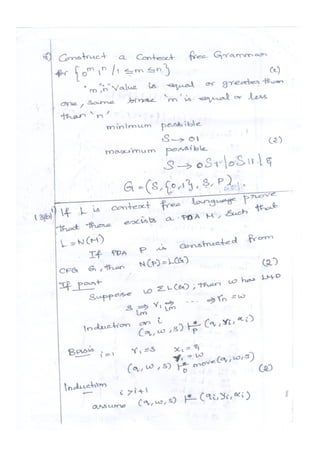 Construct a Context free Grammar
for {0^m 1^n / 1 ≤ m ≤ n} (2)
'm,n' value is equal or greater than
one, same time 'm' is equal or less
than 'n'
minimum possible
S → 01 (2)
maximum possible
S → 0S1 / 0S11 / ε
G = (S, {0,1}, S, P)
If L is context free language prove
that there exists a PDA M, such that
L = N(M)
If PDA P is constructed from
CFG G, then N(P) = L(G) (2)
If part
Suppose w Σ L(G), then w has LMD
S ⇒lm γ1 ⇒lm ... ⇒ γn = w
Induction on i
(q, w, s) ⊢*P (q, yi, αi)
Basis i = 1 γ1 = S
(q, w, s) ⊢* move (q, w, s) (2)
Induction
i > i+1
assume (q, w, s) ⊢* (qi, yi, αi)